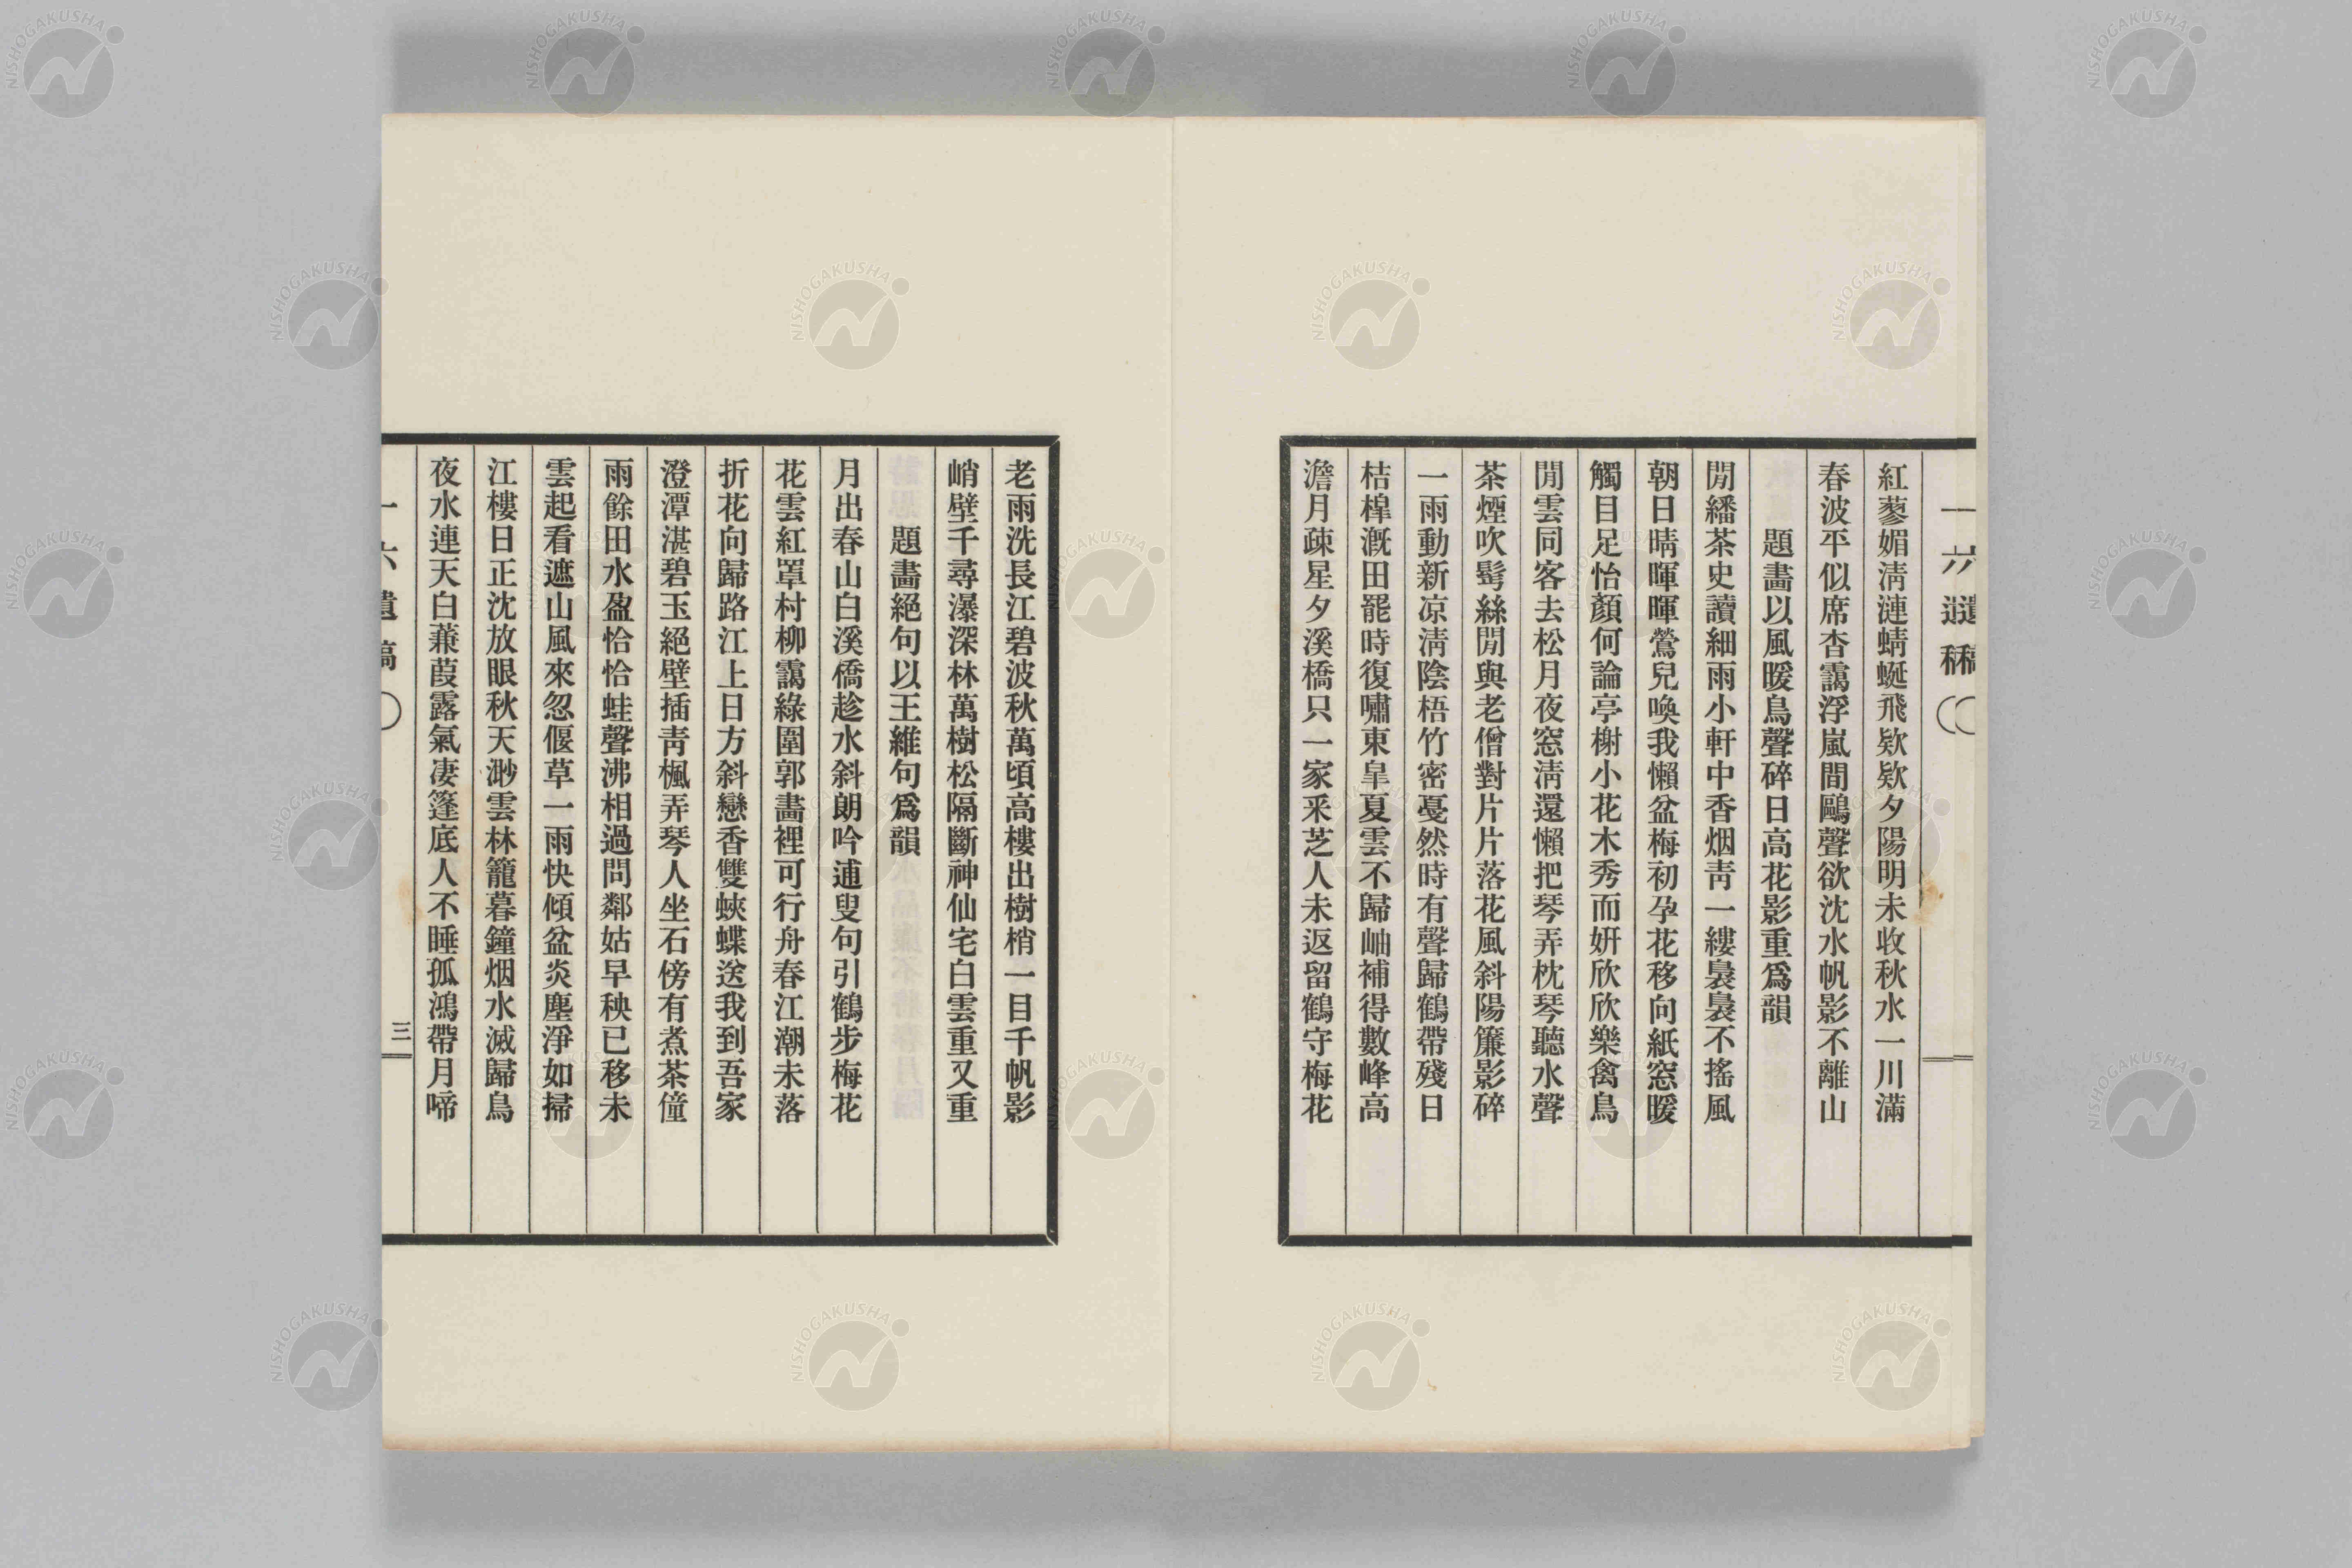 一六遺稿
紅蓼媚淸漣蜻蜒飛欵欵夕陽明未收秋水一川滿
春波平似席杳靄浮嵐間鷗聲欲沈水帆影不離山
題畵以風暖鳥聲碎日高花影重爲韻
閒繙茶史讀細雨小軒中香烟靑一縷裊裊不搖風
朝日晴暉暉鶯兒喚我懶盆梅初孕花移向紙窓暖
觸目足怡顏何論亭榭小花木秀而妍欣欣樂禽鳥
閒雲同客去松月夜窓淸還懶把琴弄枕琴聽水聲
茶煙吹鬂絲閒與老僧對片片落花風斜陽簾影碎
一雨動新凉淸陰梧竹密戞然時有聲歸鶴帶殘日
桔槹漑田罷時復嘯東皐夏雲不歸岫補得數峰高
澹月疎星夕溪橋只一家釆芝人未返留鶴守梅花
老雨洗長江碧波秋萬頃高樓出樹梢一目千帆影
峭壁千尋瀑深林萬樹松隔斷神仙宅白雲重又重
題畵絕句以王維句爲韻
月出春山白溪僑趁水斜朗吟逋叟句引鶴步梅花
花雲紅罩村柳靄綠圍郭畵裡可行舟春江潮未落
折花向歸路江上日方斜戀香雙蛺蝶送我到吾家
澄潭湛碧玉絕壁插靑楓弄琴人坐石傍有煮茶僮
雨餘田水盈恰恰蛙聲沸相過問鄰姑早秧已移未
雲起看遮山風來忽偃草一雨快傾盆炎塵淨如掃
江樓日正沈放眼秋天渺雲林籠暮鐘烟水滅歸鳥
夜水連天白蒹葭露氣凄篷底人不睡孤鴻帶月啼
一六遺稿
三
NISHOGAKUSHA